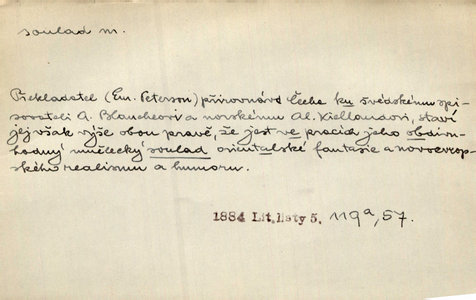 soulad m.
Překladatel (Em. Peterson) přirovnává Čecha ku švédskému spi-
sovateli A. Blancheovi a norskému Al. Kiellandovi, staví
jej však výše obou pravě, že jest ve pracích jeho obdivu-
hodný umělecký soulad orientalské fantasie a novoevrop-
ského realismu a humoru.
1884 Lit. listy 5. 119a, 57.